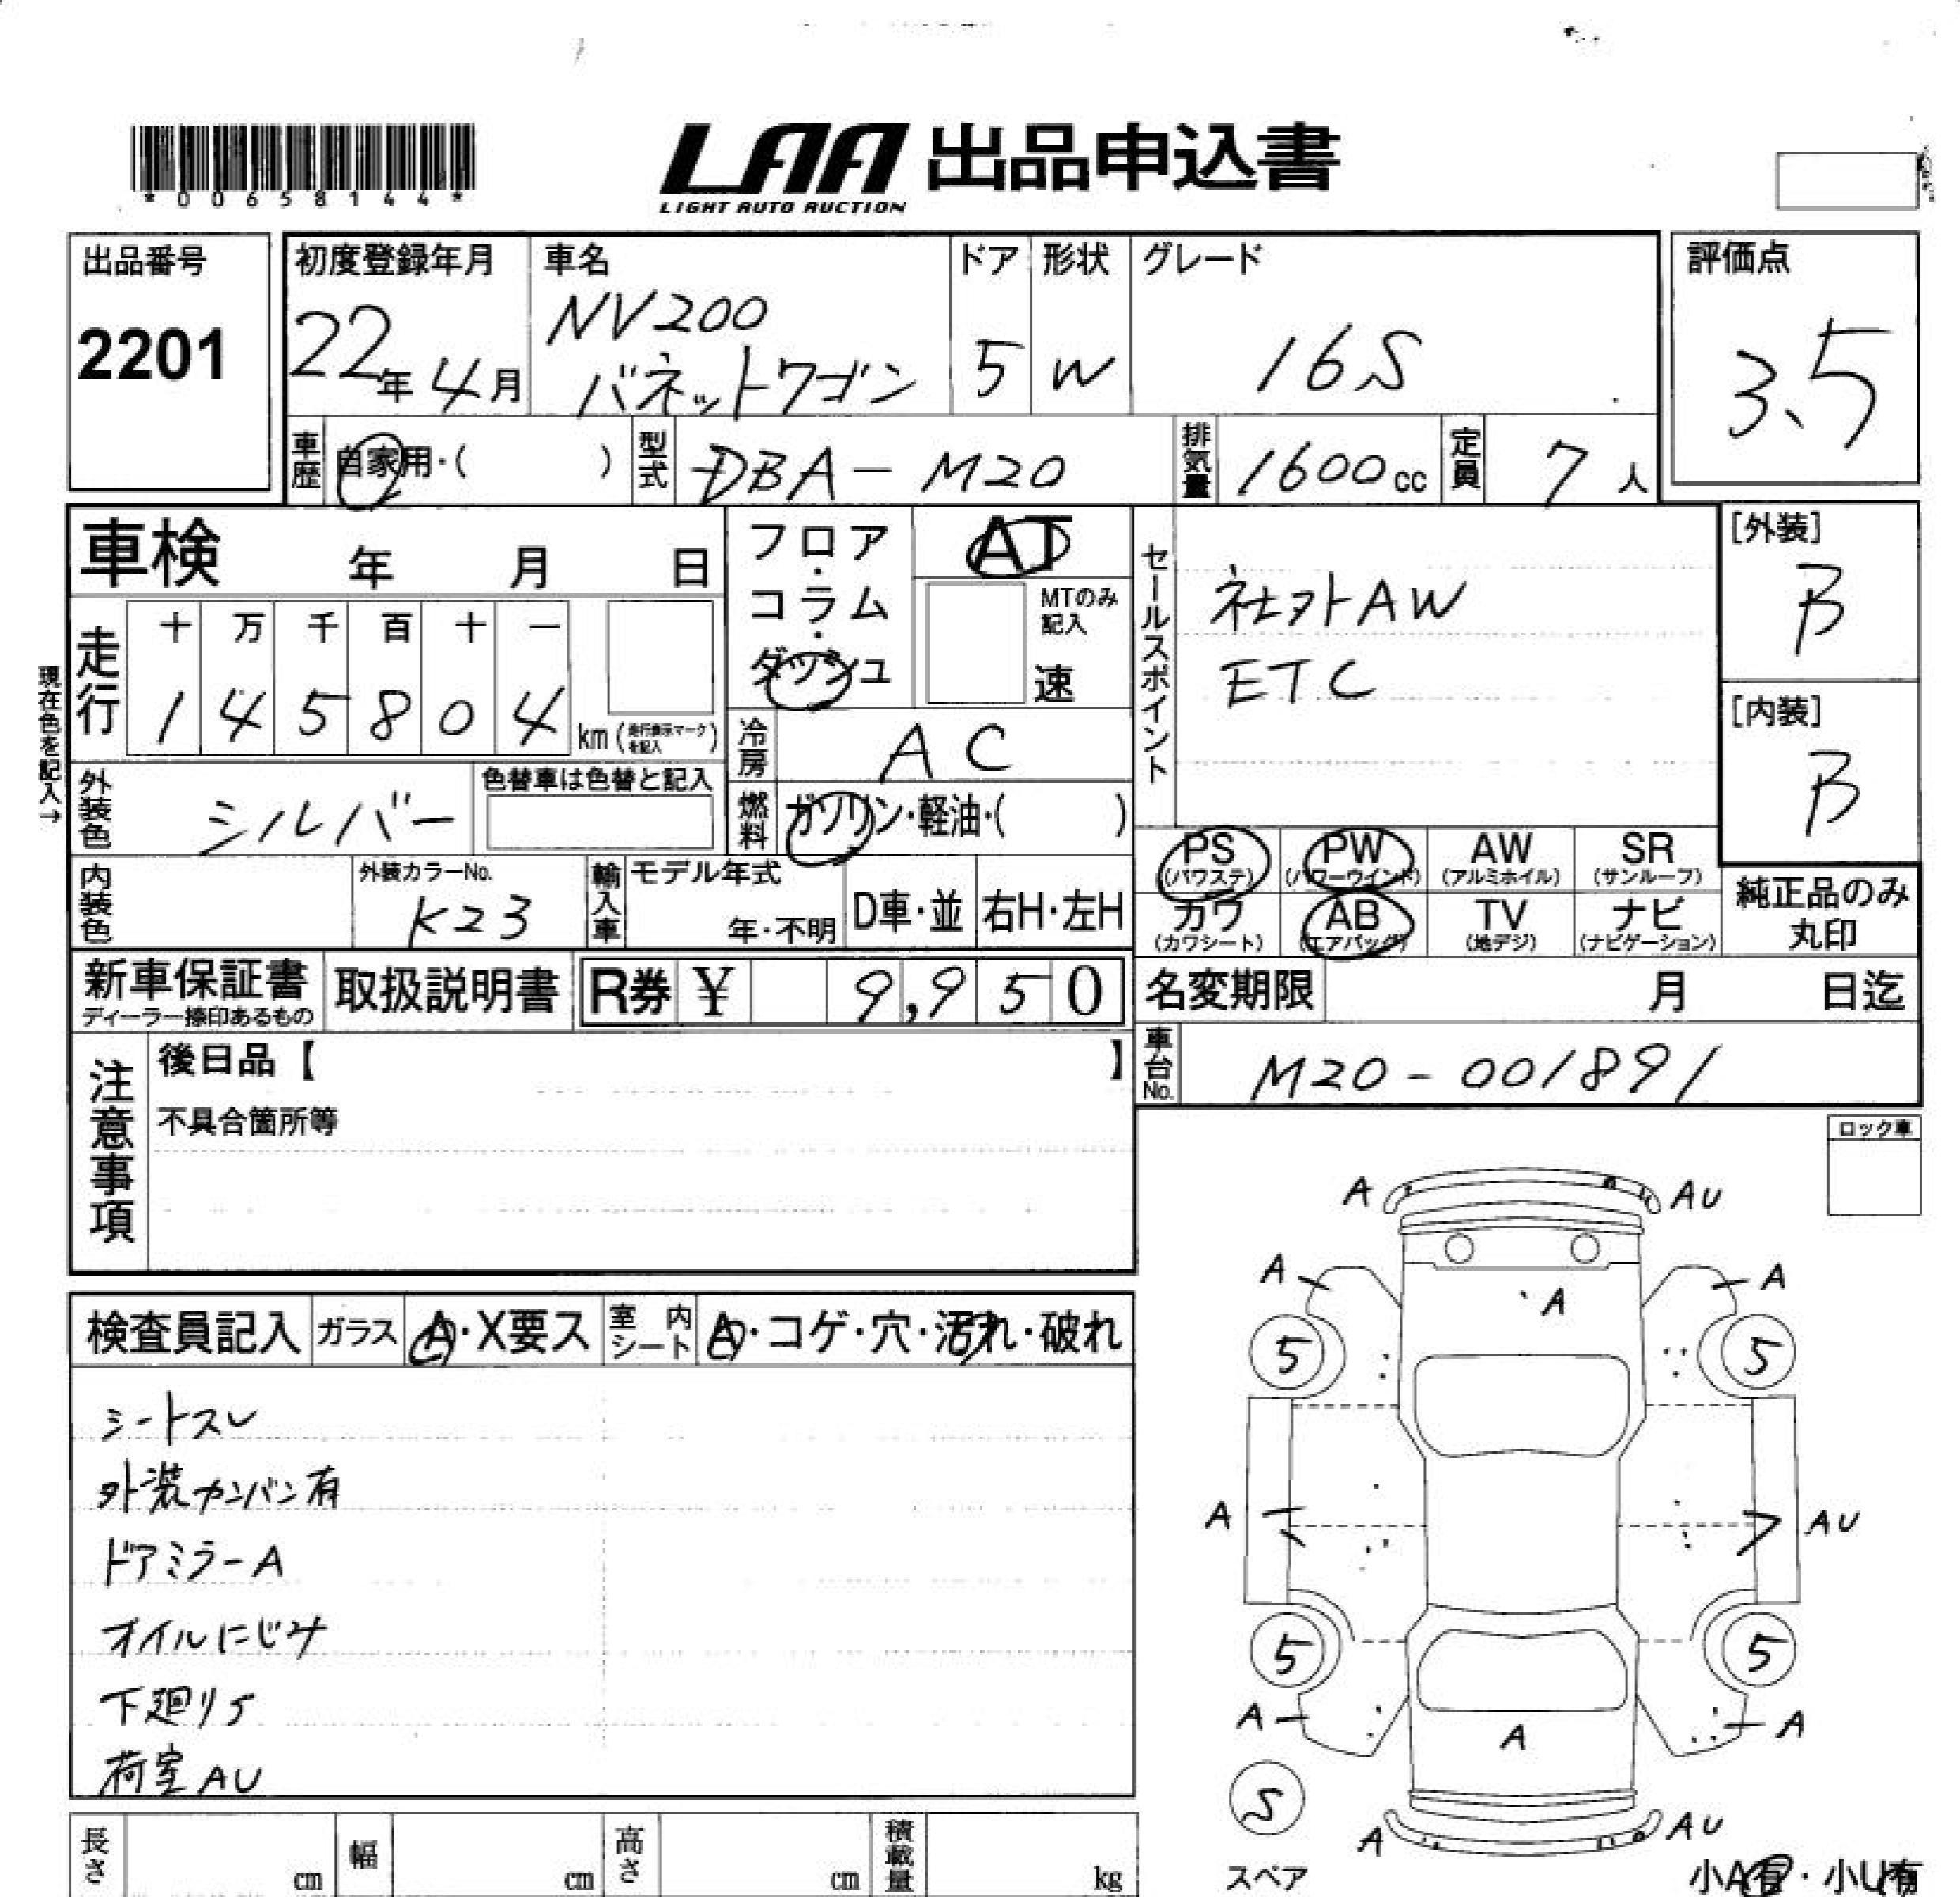 *00658144*
LAA 出品申込書
LIGHT AUTO AUCTION
出品番号
2201
初度登録年月
22年 4月
車名
NV200
バネットワゴン
ドア
5
形状
W
グレード
16S
評価点
3.5
車歴 自家用・( )
型式 DBA-M20
排気量 1600cc
定員 7人
車検 年 月 日
走行
十 万 千 百 十 一
1 4 5 8 0 4 km (走行表示マークを記入)
現在色を記入→
フロア・コラム・ダッシュ
AT
MTのみ記入
速
冷房 AC
燃料 ガソリン・軽油・( )
セールスポイント
社外AW
ETC
[外装]
B
[内装]
B
外装色 シルバー
色替車は色替と記入
内装色
外装カラーNo.
K23
輸入車
モデル年式
年・不明
D車・並
右H・左H
PS (パワステ)
PW (パワーウインド)
AW (アルミホイル)
SR (サンルーフ)
カワ (カワシート)
AB (エアバッグ)
TV (地デジ)
ナビ (ナビゲーション)
純正品のみ
丸印
新車保証書
ディーラー捺印あるもの
取扱説明書
R券 ¥ 9,950
名変期限 月 日迄
車台No. M20-001891
注意事項
後日品【 】
不具合箇所等
ロック車
検査員記入
ガラス A・X要ス
室内シート A・コゲ・穴・汚れ・破れ
シートスレ
外装カンバン有
ドアミラーA
オイルにじみ
下廻りS
荷室AU
A AU
A A
A
5 5
A AU
5 5
A A
A
S
スペア
A AU
小A有・小U有
長さ cm
幅 cm
高さ cm
積載量 kg